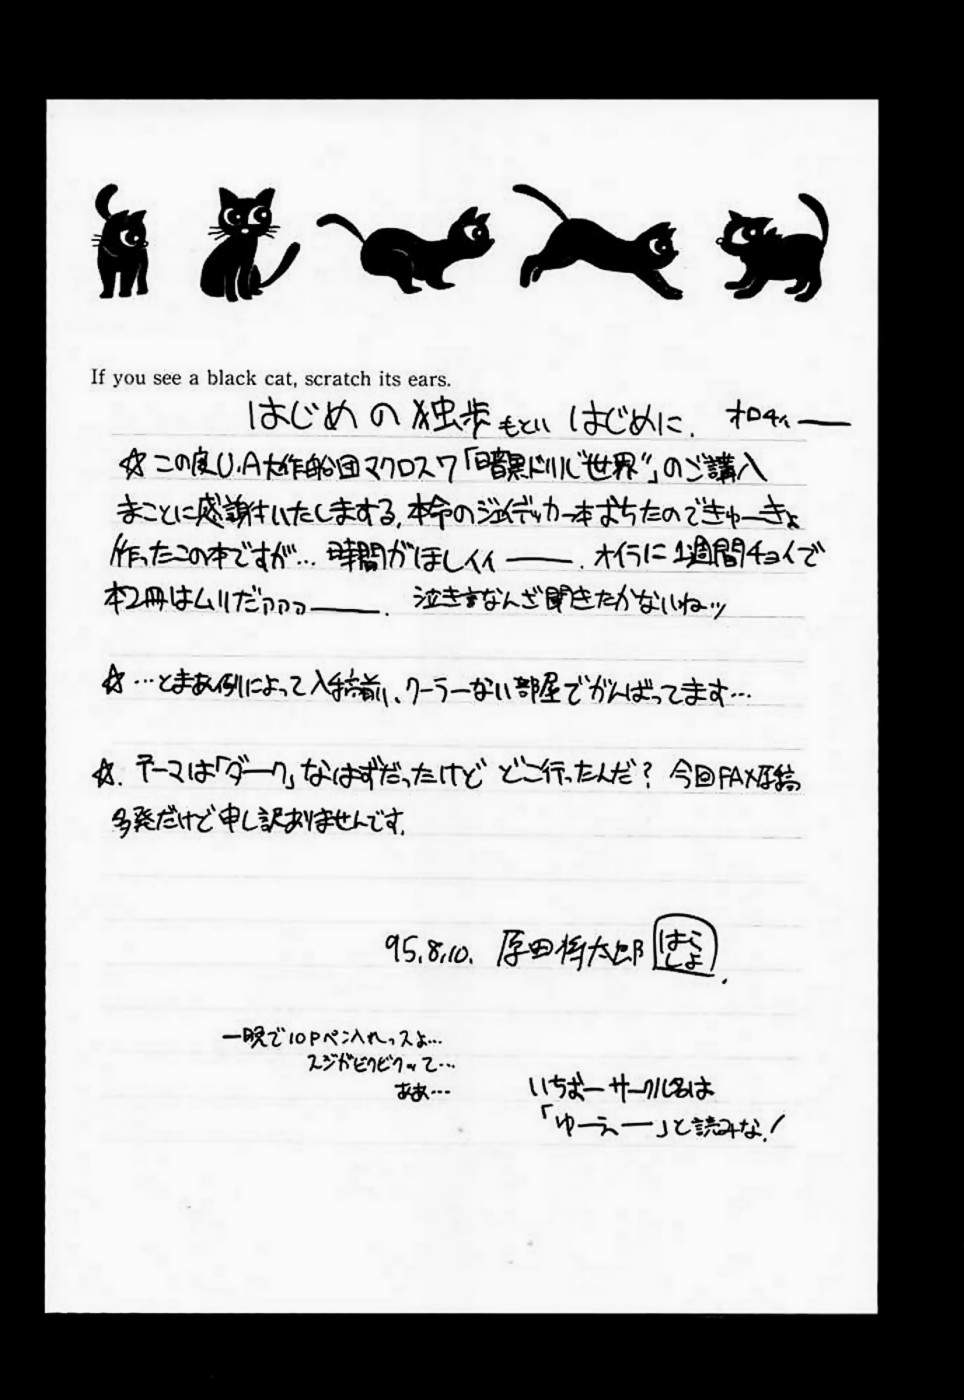 If you see a black cat, scratch its ears.
はじめの独歩 もとい はじめに. オロチィー
☆この度U.A大作船団マクロス7「暗黒ドリル世界」のご講入
まことに感謝けいたしまする, 本命のジェイデッカー本おちたのできゅーきょ
作ったこの本ですが… 時間がほしィィー. オイラに1週間チョイで
本2冊はムリだァァァー. 泣き言なんざ聞きたかないねッ
☆…とまあ例によって入稿前、クーラーない部屋でがんばってます…
☆. テーマは「ダーク」なはずだったけど どこ行ったんだ? 今回FAX原稿
多発だけど申し訳ありませんです.
95.8.10. 原田将太郎 はらしょ.
一晩で10Pペン入れっスよ…
スジがピクピクッて…
ああ…
いちおーサークル名は
「ゆーえー」と読みな!